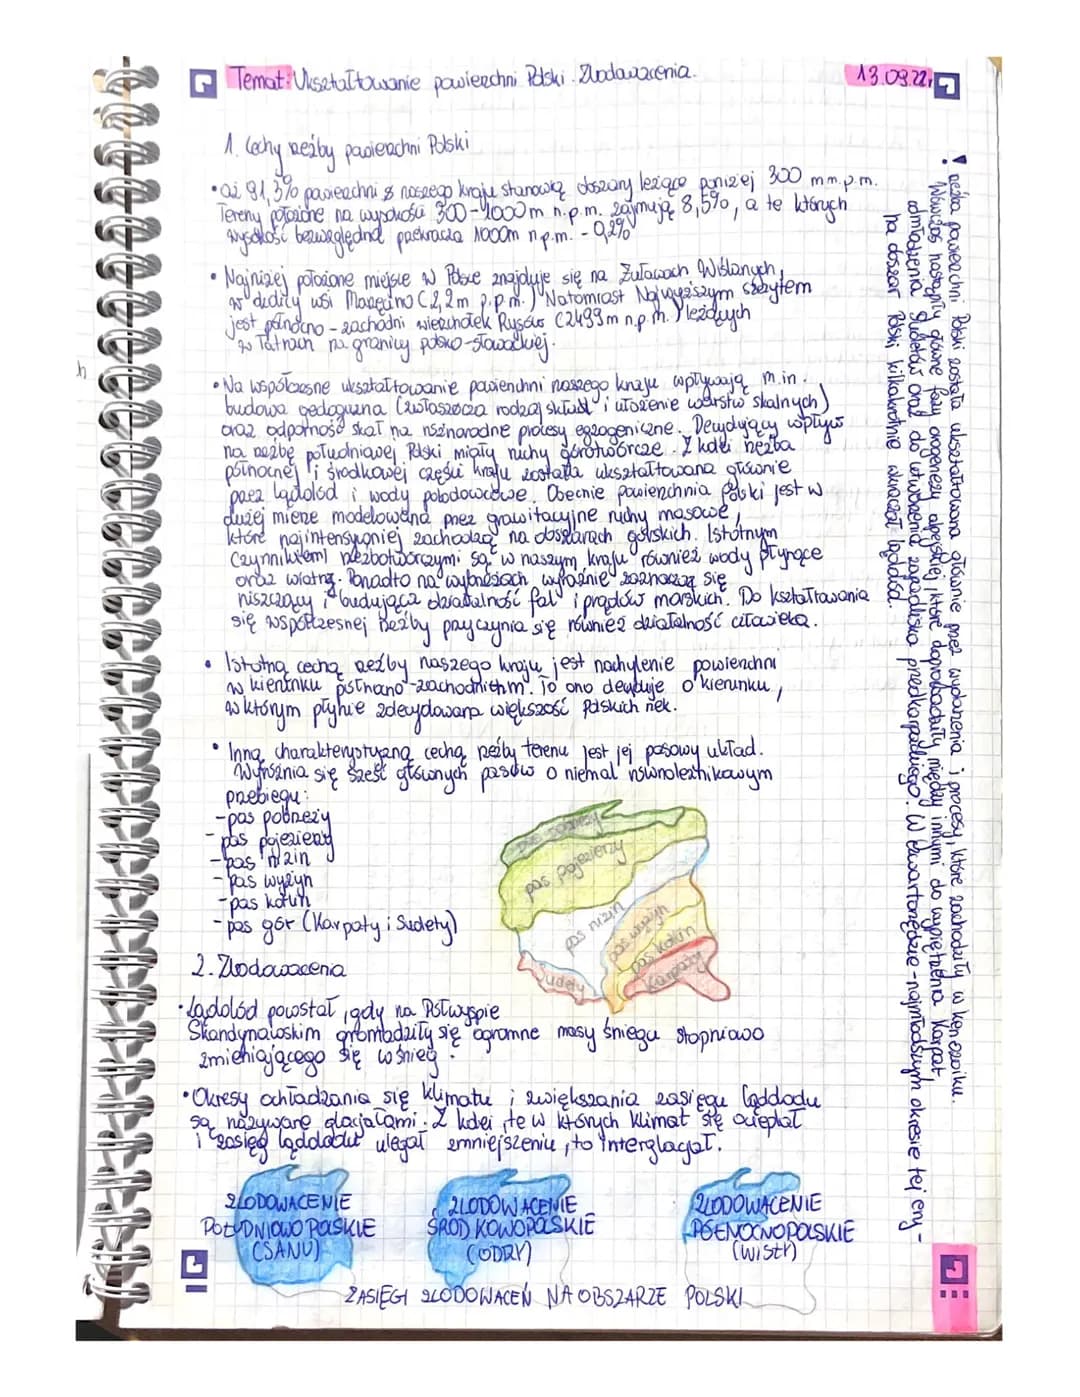 Temat: Ukształtowanie powierzchni Polski. Zlodowacenia.
13.09.22r
1. Cechy rzeźby powierzchni Polski
• aż 91,3% powierzchni z naszego kraju stanowią obszary leżące poniżej 300 m m.p.m.
Tereny położone na wysokości 300-1000m n.p.m. zajmują 8,5%, a te których
wysokość bezwzględna przekracza 1000m n.p.m. - 0,2%
• Najniżej położone miejsce w Polsce znajduje się na Żuławach Wiślanych,
w okolicy wsi Marzęcino (2,2m p.p.m.) Natomiast Najwyższym szczytem
jest północno-zachodni wierzchołek Rysów (2499m n.p.m.) leżących
w Tatrach na granicy polsko-słowackiej.
• Na współczesne ukształtowanie powierzchni naszego kraju wpływają m.in.
budowa geologiczna (zwłaszcza rodzaj skład i ułożenie warstw skalnych)
oraz odporność skał na różnorodne procesy egzogeniczne. Decydujący wpływ
na rzeźbę południowej Polski miały ruchy górotwórcze. Z kolei rzeźba
północnej i środkowej części kraju została ukształtowana głównie
przez lądolód i wody polodowcowe. Obecnie powierzchnia Polski jest w
dużej mierze modelowana przez grawitacyjne ruchy masowe,
które najintensywniej zachodzą na obszarach górskich. Istotnym
czynnikiem rzeźbotwórczymi są w naszym kraju również wody płynące
oraz wiatrg. Ponadto na wybrzeżach wyraźnie zaznaczą się
niszczący i budująca działalność fal i prądów morskich. Do kształtowania
się współczesnej rzeźby przyczynia się również działalność człowieka.
• Istotną cechą rzeźby naszego kraju jest nachylenie powierzchni
w kierunku północno-zachodnim. To ono decyduje o kierunku,
w którym płynie zdecydowana większość polskich rzek.
• Inną charakterystyczną cechą rzeźby terenu jest jej pasowy układ.
Wyróżnia się sześć głównych pasów o niemal równoleżnikowym
przebiegu:
- pas pobrzeży
- pas pojezierzy
- pas nizin
- pas wyżyn
- pas kotlin
- pas gór (Karpaty i Sudety)
pas pobrzeży
pas pojezierzy
pas nizin
pas wyżyn
pas kotlin
Sudety
Karpaty
2. Zlodowacenia
• Lądolód powstał, gdy na Półwyspie
Skandynawskim gromadziły się ogromne masy śniegu stopniowo
zmieniającego się w śnieg.
• Okresy ochładzania się klimatu i zwiększania zasięgu lądolodu
są nazywane glacjałami. Z kolei, te w których klimat się ocieplał
i zasięg lądolodu ulegał zmniejszeniu, to interglacjał.
ZLODOWACENIE
POŁUDNIOWO POLSKIE
(SANU)
ZLODOWACENIE
ŚRODKOWOPOLSKIE
(ODRY)
ZLODOWACENIE
PÓŁNOCNOPOLSKIE
(WISŁY)
ZASIĘGI ZLODOWACEŃ NA OBSZARZE POLSKI
! rzeźba powierzchni Polski została ukształtowana głównie przez wydarzenia i procesy, które zachodziły w kenozoiku.
Wówczas nastąpiły główne fazy orogenezy alpejskiej, które doprowadziły między innymi do wypiętrzenia Karpat
odmłodzenia Sudetów oraz do utworzenia zapadliska przedkarpackiego. W czwartorzędzie - najmłodszym okresie tej ery -
na obszar Polski kilkakrotnie wkraczał lądolód.